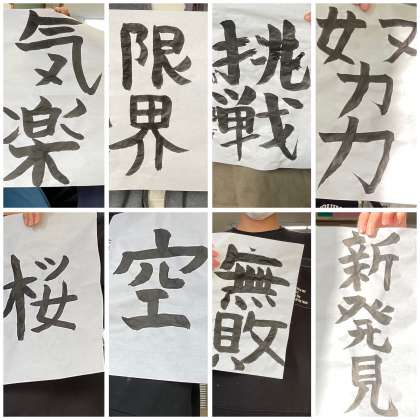 気楽
限界
挑戦
努力
桜
空
無敗
新発見